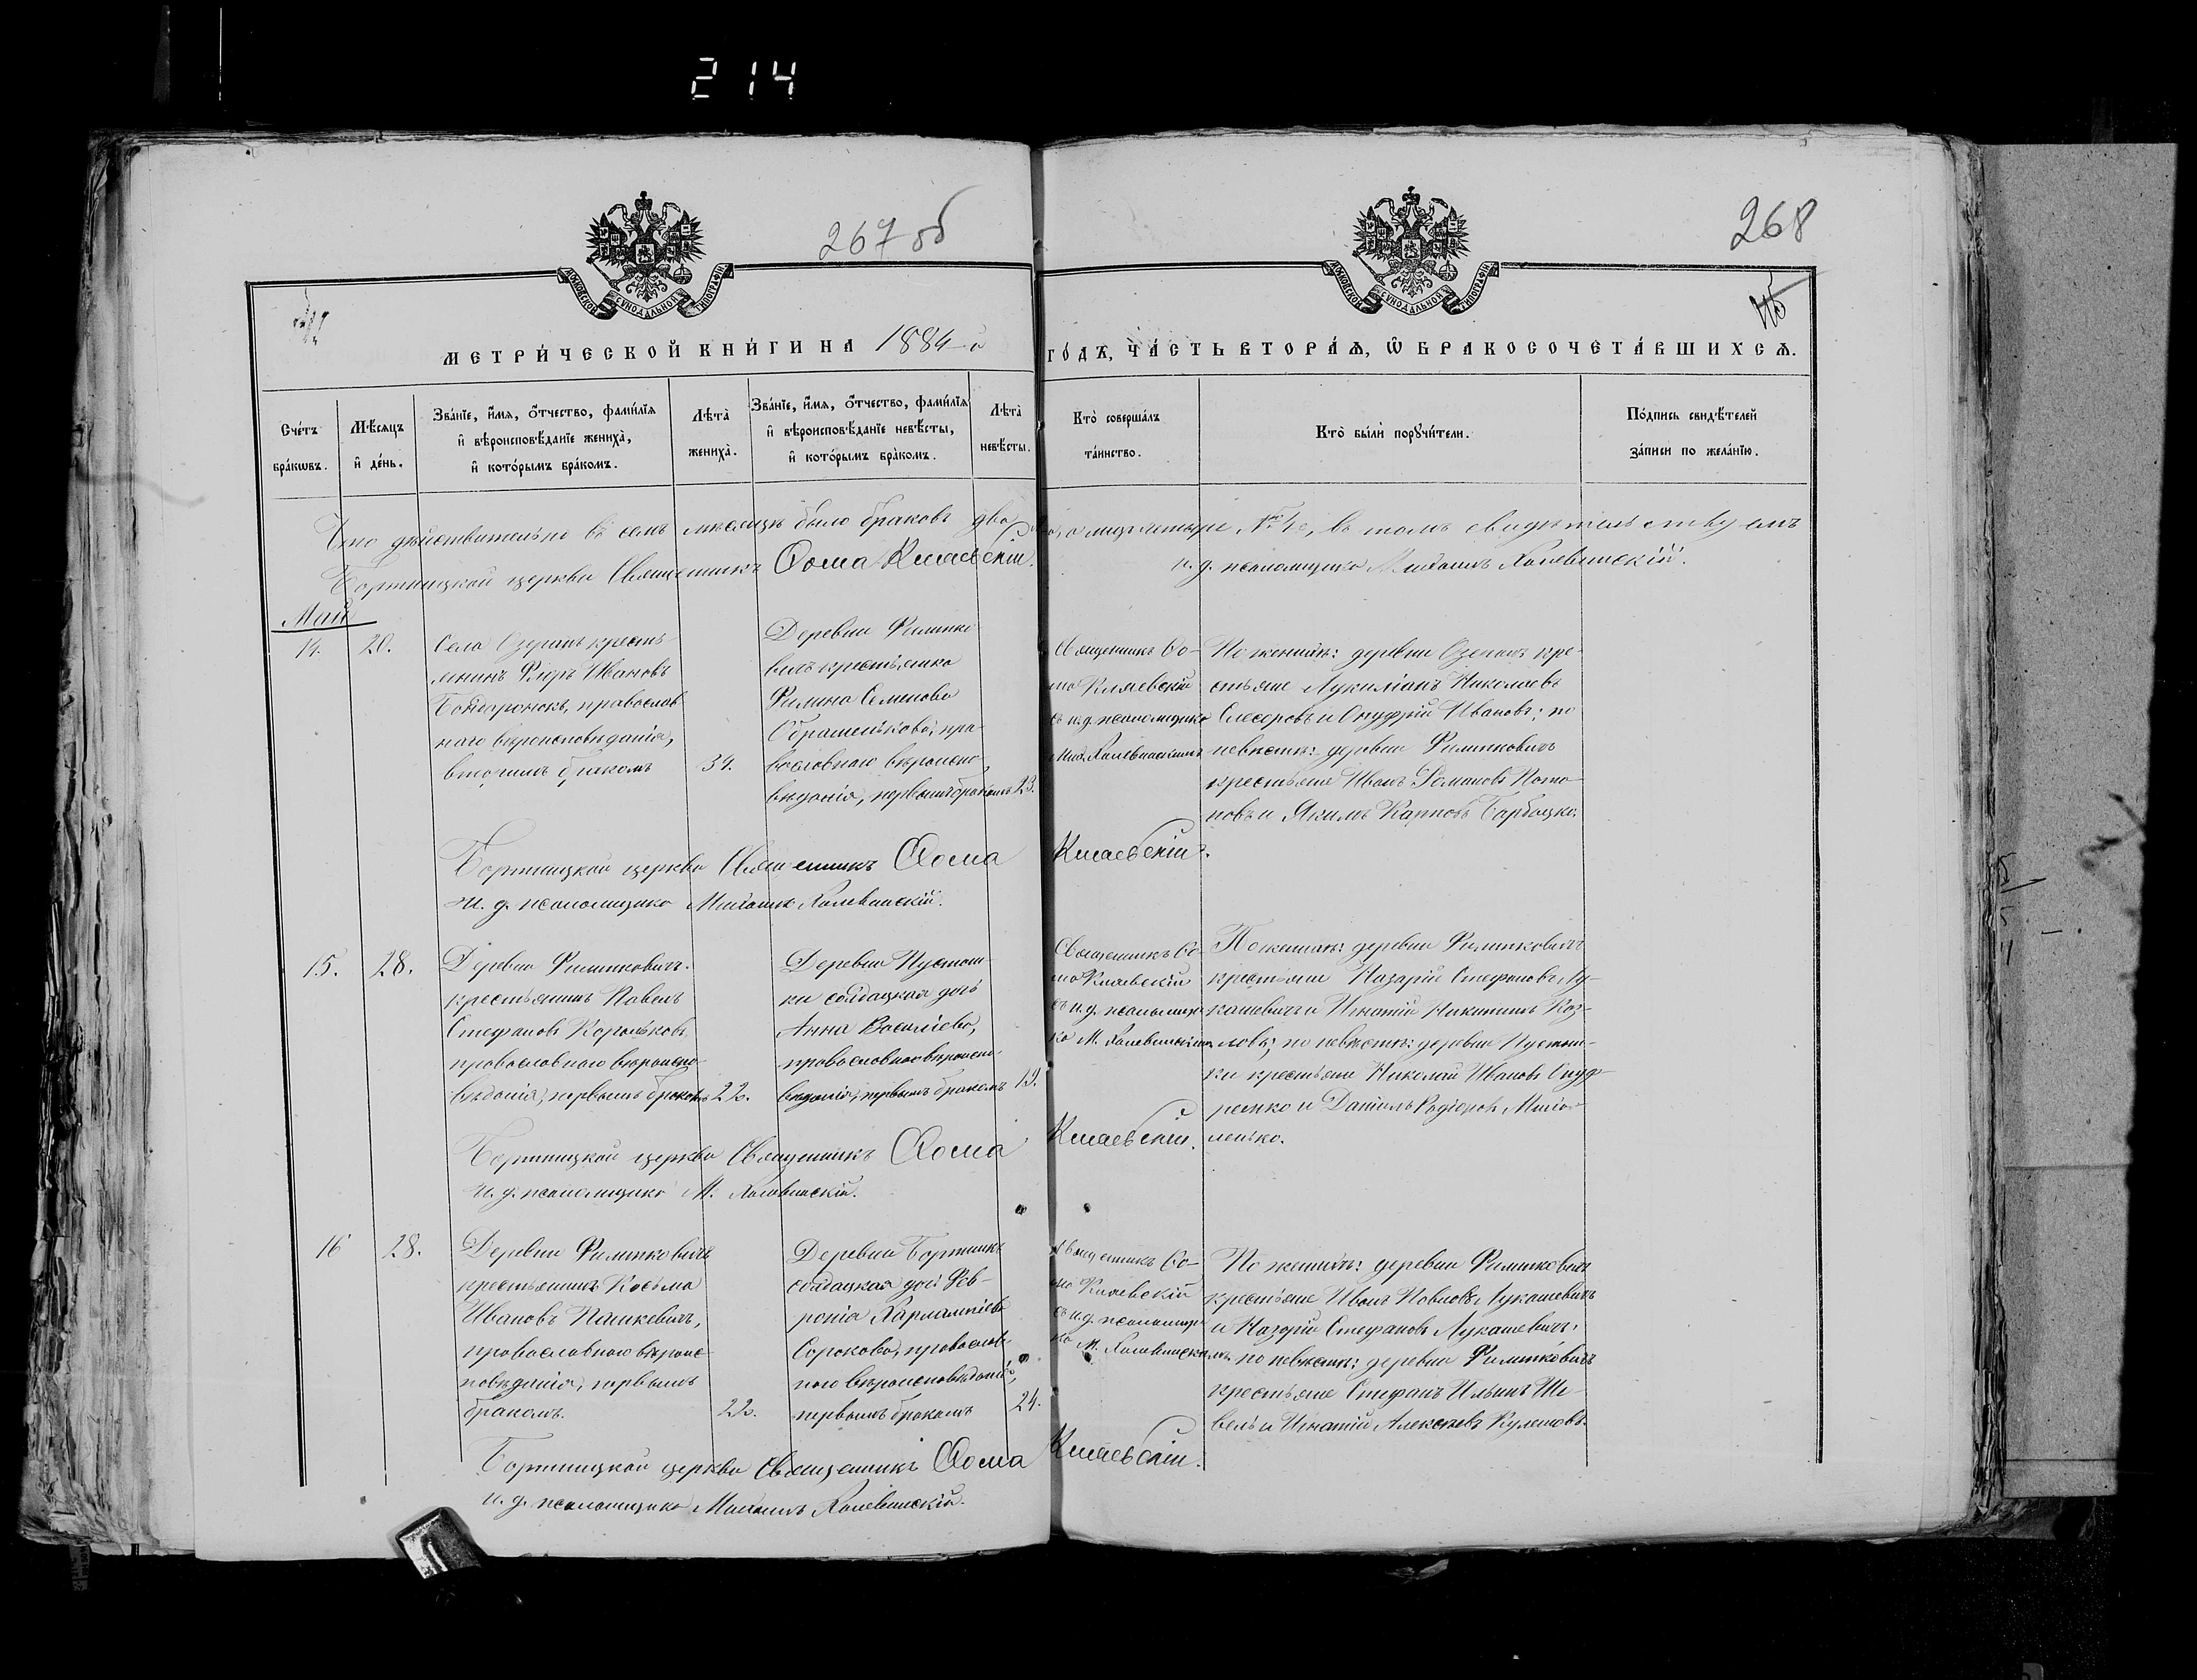 214
267 об
268
МОСКОВСКОЙ СѴНОДАЛЬНОЙ ТИПОГРАФІИ
МОСКОВСКОЙ СѴНОДАЛЬНОЙ ТИПОГРАФІИ
МЕТРИ́ЧЕСКОЙ КНИ́ГИ НА 1884-й
ГО́ДЪ, ЧА́СТЬ ВТОРА́Ѧ, Ѡ БРАКОСОЧЕТА́ВШИХСѦ.
Сче́тъ бра́кѡвъ.
Мѣ́сѧцъ и де́нь.
Зва́нїе, и́мѧ, о́тчество, фами́лїѧ и вѣроисповѣ́данїе жениха̀, и кото́рымъ бра́комъ.
Лѣ́та̀ жениха̀.
Зва́нїе, и́мѧ, о́тчество, фами́лїѧ и вѣроисповѣ́данїе невѣ́сты, и кото́рымъ бра́комъ.
Лѣ́та̀ невѣ́сты.
Кто̀ соверша́лъ та́инство.
Кто̀ бы́ли порꙋчи́тели.
По́дпись свидѣ́телей за́писи по жела́нїю.
Что дѣйствительно въ семъ мѣсяцѣ было браковъ два
въ томъ свидѣтельствуемъ
Бортницкой церкви Священникъ Ѳома Кмаевскій.
и. д. псаломщика Михаилъ Халевинскій.
Май
14.
20.
Села Озеранъ кресть-
янинъ Ивановъ
православ-
наго вѣроисповѣданія,
вторымъ бракомъ
34.
Деревни Филипко-
вичъ крестьянка
Семенова
пра-
вославнаго вѣроиспо-
вѣданія, первымъ бракомъ
23.
Священникъ Ѳо-
ма Кмаевскій
съ и. д. псаломщика
Мих. Халевинскимъ
По женихѣ: деревни Озеранъ кре-
стьяне Лукиліанъ Николаевъ
и Онуфрій Ивановъ; по
невѣстѣ: деревни Филипковичъ
крестьяне Иванъ Романовъ Пота-
повъ и Якимъ Карповъ
Бортницкой церкви Священникъ Ѳома Кмаевскій.
и. д. псаломщика Михаилъ Халевинскій.
15.
28.
Деревни Филипковичъ
крестьянинъ Павелъ
Стефановъ Корольковъ,
православнаго вѣроиспо-
вѣданія, первымъ бракомъ
22.
Деревни Пустош-
ки солдацкая дочь
Анна Васильева,
православнаго вѣроиспо-
вѣданія, первымъ бракомъ
19.
Священникъ Ѳо-
ма Кмаевскій
съ и. д. псаломщи-
ка М. Халевинскимъ
По женихѣ: деревни Филипковичъ
крестьяне Назарій Стефановъ Лу-
кашевичъ и Игнатій Никитинъ Коз-
ловъ; по невѣстѣ: деревни Пустош-
ки крестьяне Николай Ивановъ Онуф-
ренко и Даніилъ
Бортницкой церкви Священникъ Ѳома Кмаевскій.
и. д. псаломщика М. Халевинскій.
16
28.
Деревни Филипковичъ
крестьянинъ Косьма
Ивановъ Пашкевичъ,
православнаго вѣроис-
повѣданія, первымъ
бракомъ.
22.
Деревни Бортникъ
солдацкая дочь Фев-
ронія Харлампіева
Сорокова, православ-
наго вѣроисповѣданія,
первымъ бракомъ
24.
Священникъ Ѳо-
ма Кмаевскій
съ и. д. псаломщи-
ка М. Халевинскимъ
По женихѣ: деревни Филипковичъ
крестьяне Иванъ Павловъ Лукашевичъ
и Назарій Стефановъ Лукашевичъ;
по невѣстѣ: деревни Филипковичъ
крестьяне Стефанъ Ильинъ Ше-
вель и Игнатій Алексѣевъ Кулешовъ.
Бортницкой церкви Священникъ Ѳома Кмаевскій.
и. д. псаломщика Михаилъ Халевинскій.